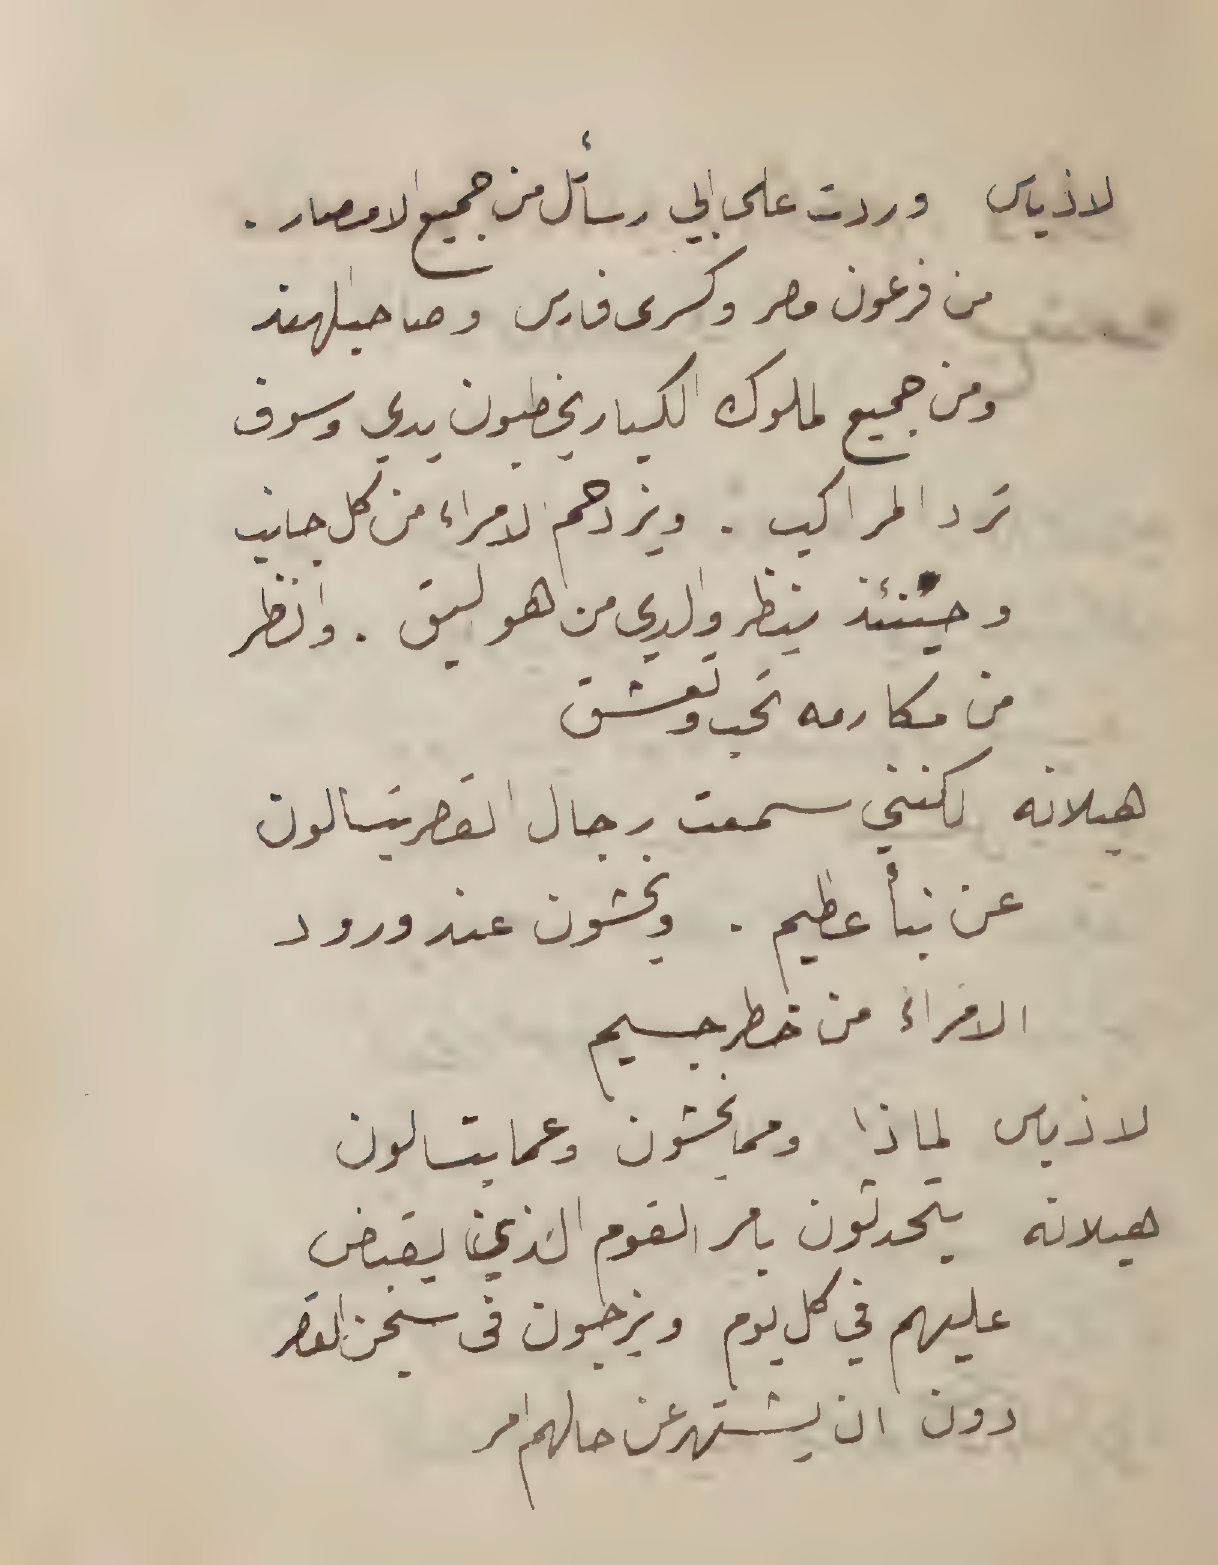 لاذياس وردت على ابي رسأئل من جميع الامصار .
من فرعون مصر وكسرى فارس وصاحب الهند
ومن جميع الملوك الكبار يخطبون يدي وسوف
ترد المراكب . ويزدحم الامراء من كل جانب
وحينئذ ينظر والدي من هو ليق . وانظر
من مكارمه تحب وتعشق
هيلانه لكنني سمعت رجال القصر يتسالون
عن نبأ عظيم . ويخشون عند ورود
الامراء من خطر جسيم
لاذياس لماذا ومما يخشون وعما يتسالون
هيلانه يتحدثون بامر القوم الذين يقبض
عليهم في كل يوم ويزجون فى سجن القصر
دون ان يشتهر عن حالهم امر